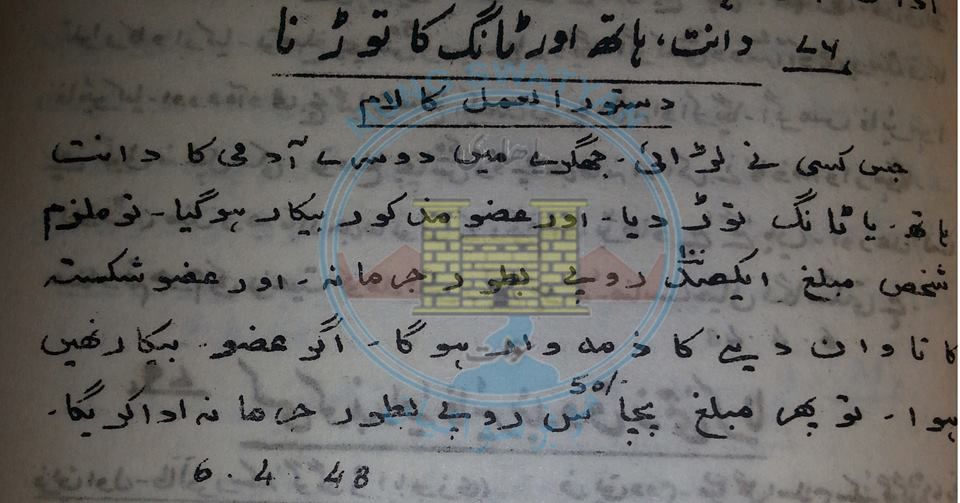 ۷۶ دانت، ہاتھ اور ٹانگ کا توڑنا
دستور العمل کالام
جس کسی نے لڑائی۔ جھگڑے میں دوسرے آدمی کا دانت
ہاتھ۔ یا ٹانگ توڑ دیا۔ اور عضو مذکور بیکار ہوگیا۔ تو ملزم
شخص مبلغ ایکصد روپے بطور جرمانہ۔ اور عضو شکستہ
کا تاوان دینے کا ذمہ وار ہوگا۔ اگر عضو بیکار نہیں
50/-
ہوا۔ تو پھر مبلغ پچاس روپے بطور جرمانہ ادا کریگا۔
6. 4. 48